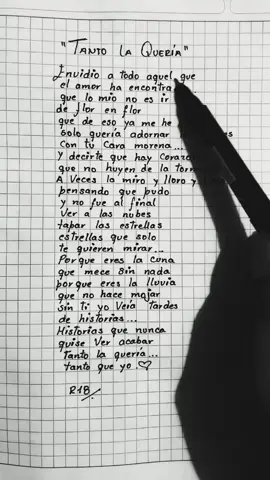 "TANTO LA QUERÍA"
Envidio a todo aquel que
el amor ha encontra
que lo mio no es ir
de flor en flor
que de eso ya me he
solo quería adornar es
Con tu Cara morena...
y decirte que hay Corazo
que no huyen de la torm
A Veces la miro y lloro y
pensando que pudo
y no fue al final
Ver a las nubes
tabar las estrellas
estrellas que solo
te quieren mirar...
Porque eres la Cuna
que mece sin nada
porque eres la lluvia
que no hace mojar
sin ti yo Veía tardes
de historias...
Historias que nunca
quise Ver acabar
Tanto la quería...
tanto que yo